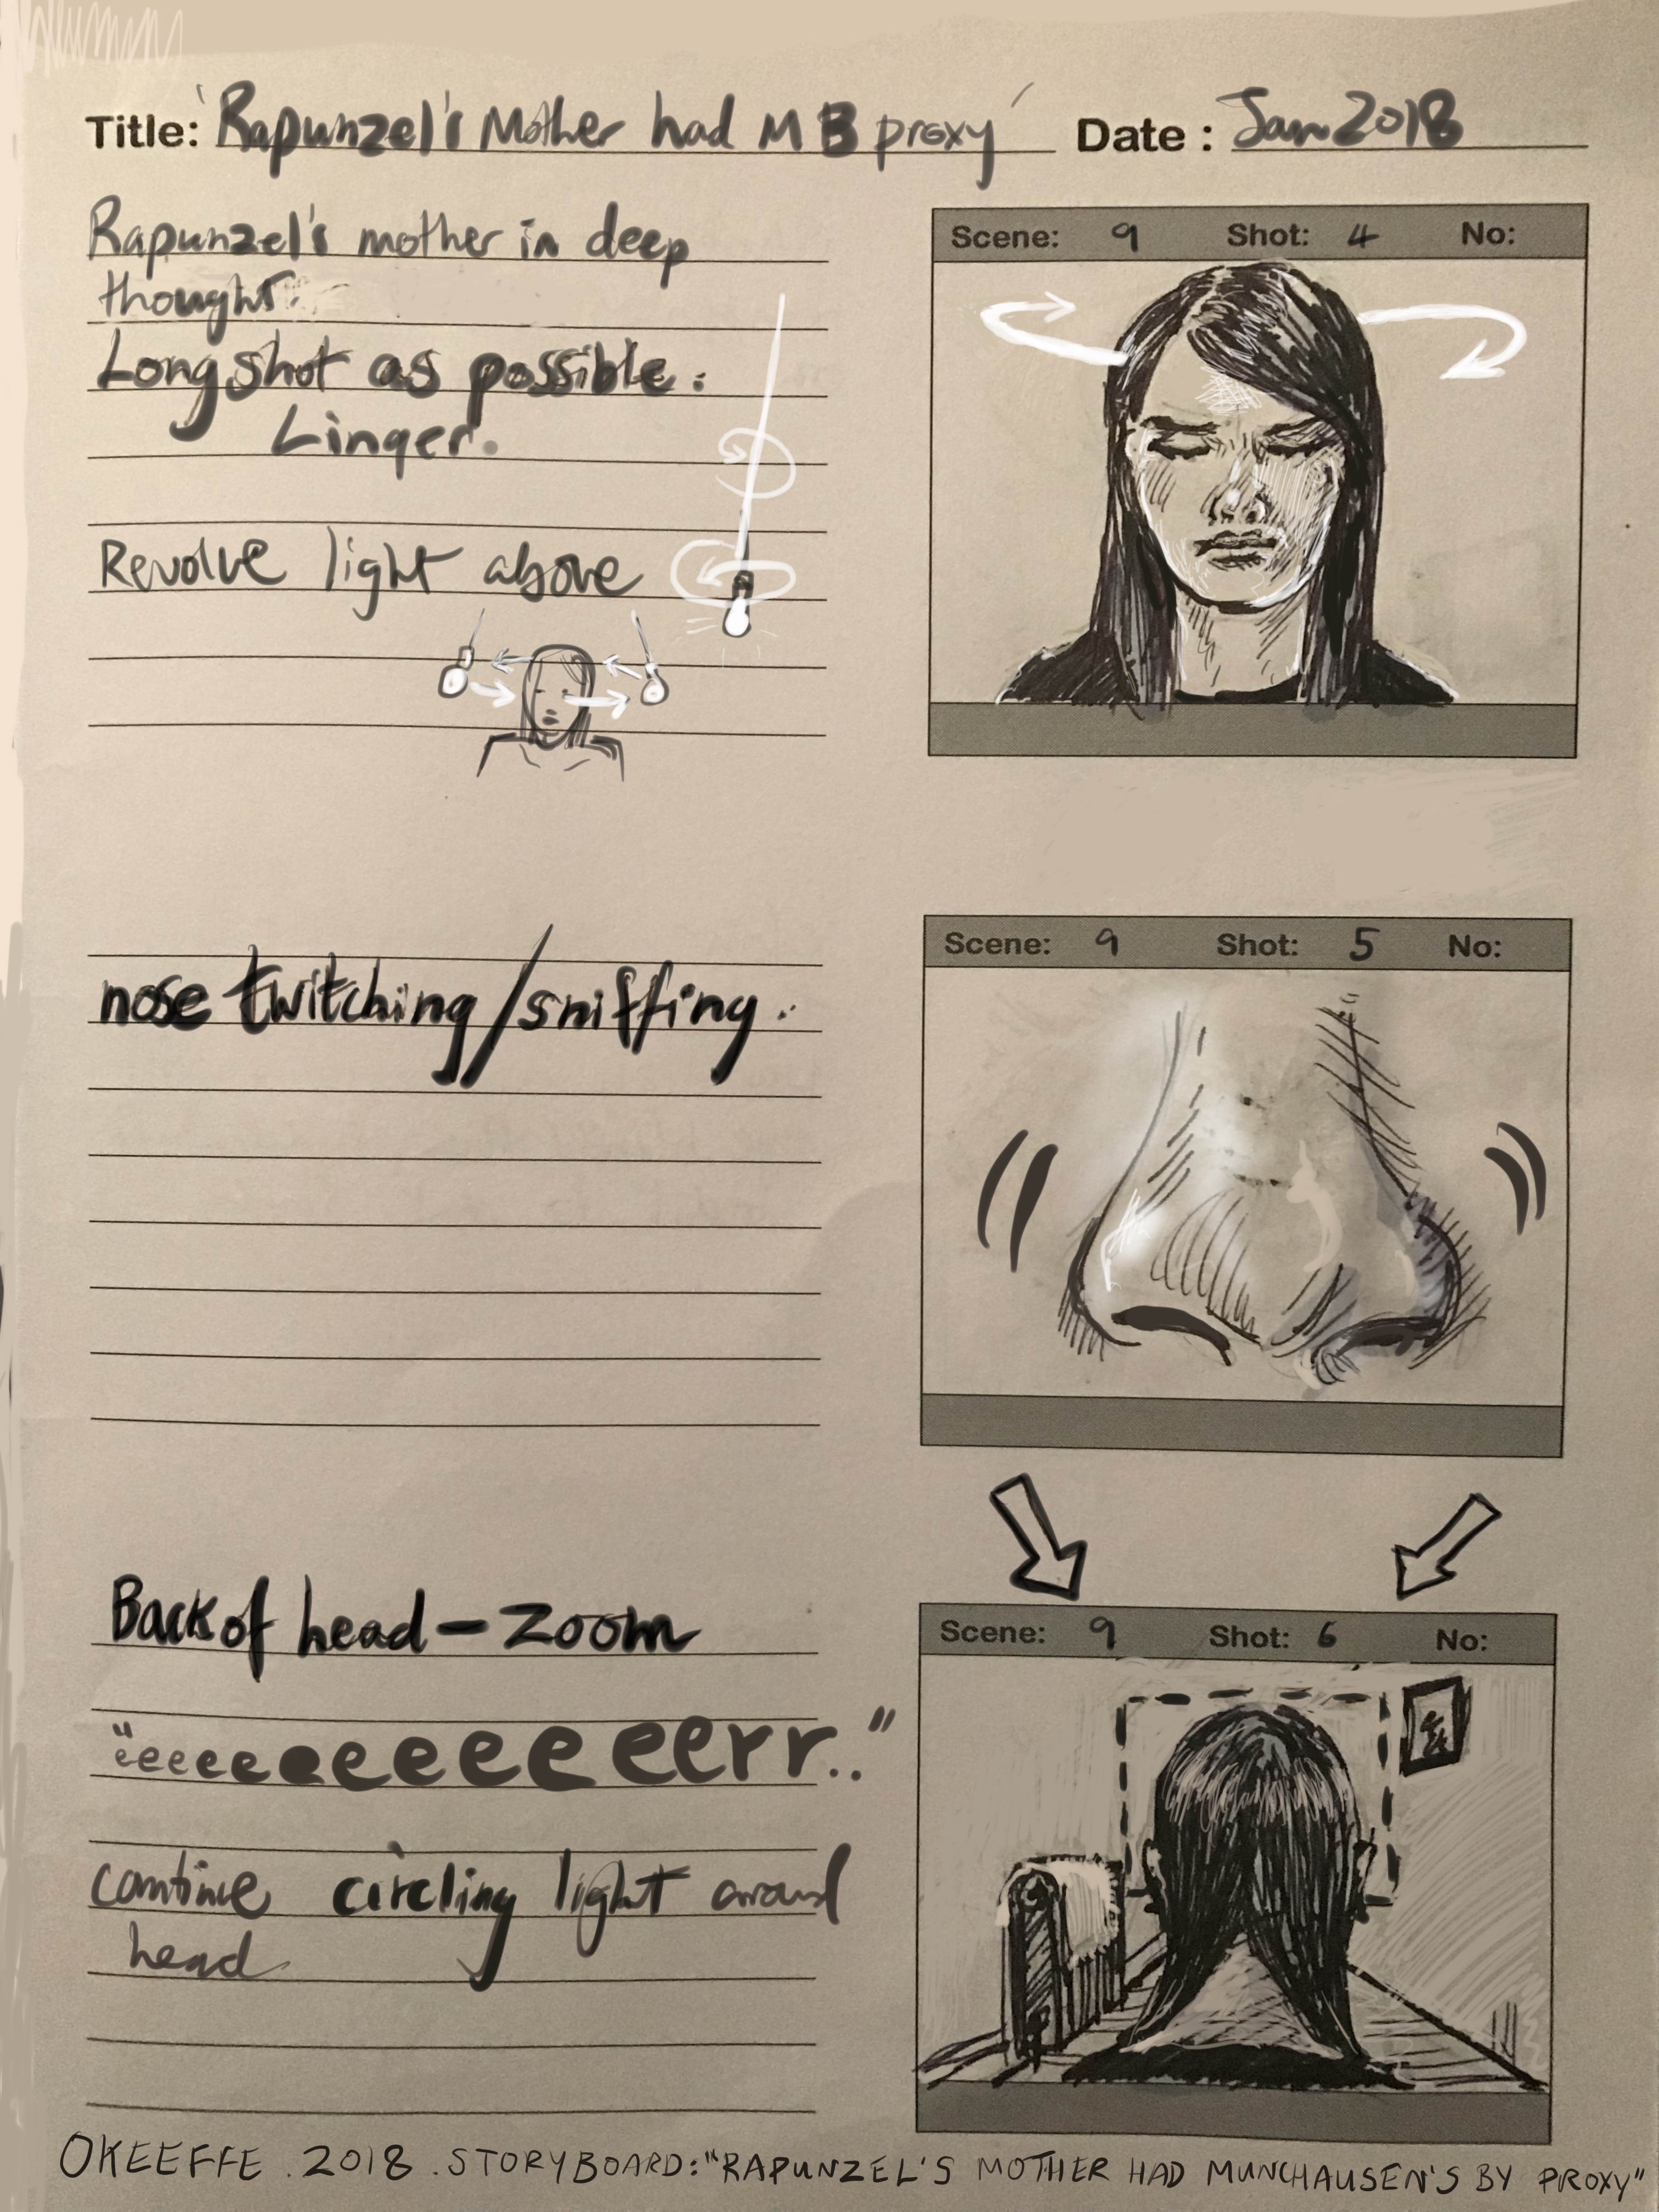 Title: 'Rapunzel's Mother had M B proxy' Date: Jan 2018
Rapunzel's mother in deep
thought.
Long shot as possible.
Linger.
Revolve light above
Scene: 9 Shot: 4 No:
nose twitching/sniffing.
Scene: 9 Shot: 5 No:
Back of head - zoom
"eeeeeeeeeeeeerr.."
continue circling light around
head
Scene: 9 Shot: 6 No:
OKEEFFE . 2018 . STORYBOARD: "RAPUNZEL'S MOTHER HAD MUNCHAUSEN'S BY PROXY"